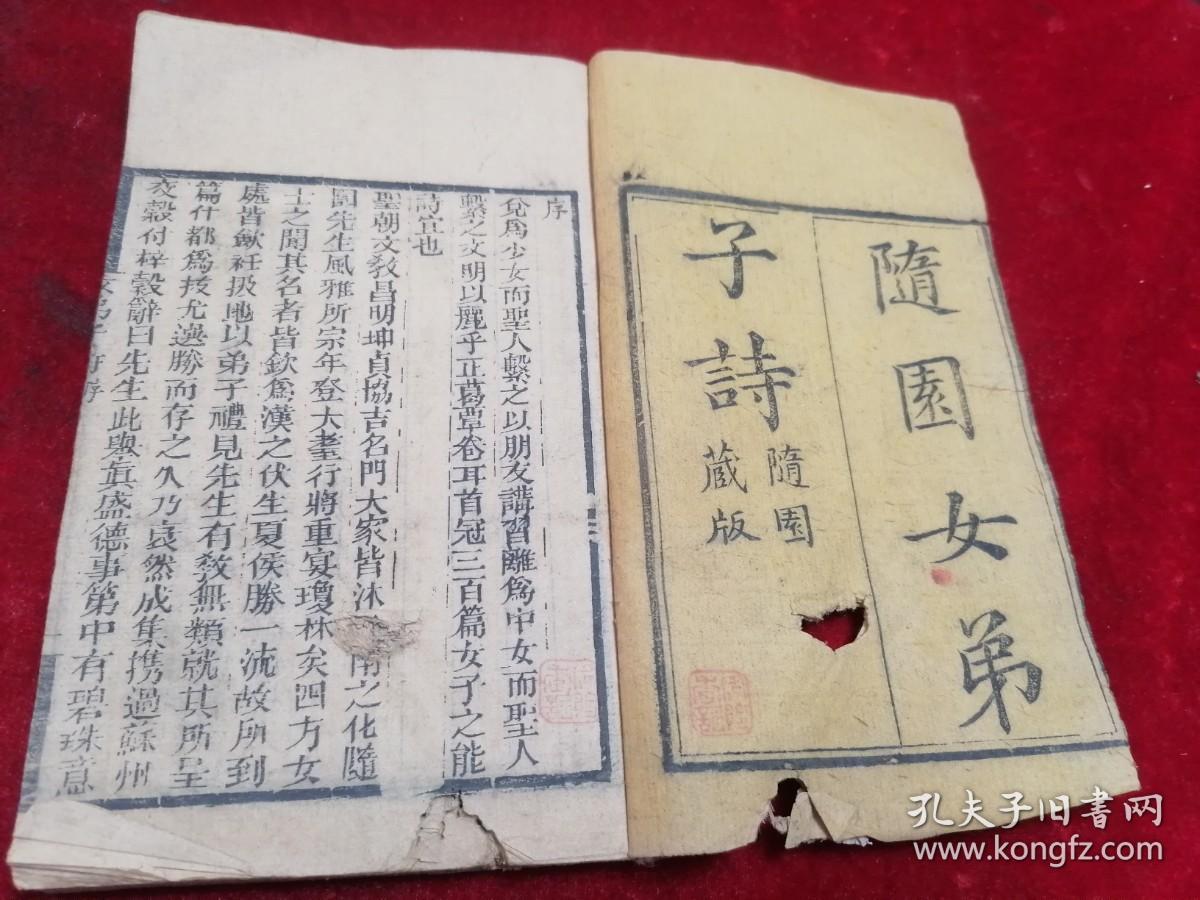 隨園女弟
子詩
隨園
蔵版
序
兌爲少女而聖人繫之以朋友講習離爲中女而聖人
繫之文明以麗乎正葛覃卷耳首冠三百篇女子之能
詩宜也
聖朝文敎昌明坤貞協吉名門大家皆沐南之化隨
園先生風雅所宗年登大耋行將重宴瓊林矣四方女
士之聞其名者皆欽爲漢之伏生夏侯勝一流故所到
處皆斂衽扱地以弟子禮見先生有敎無類就其所呈
篇什都爲技尤選勝而存之久乃裒然成集携過蘇州
交穀付梓穀辭曰先生此與眞盛德事第中有碧珠意
孔夫子旧书网
www.kongfz.com